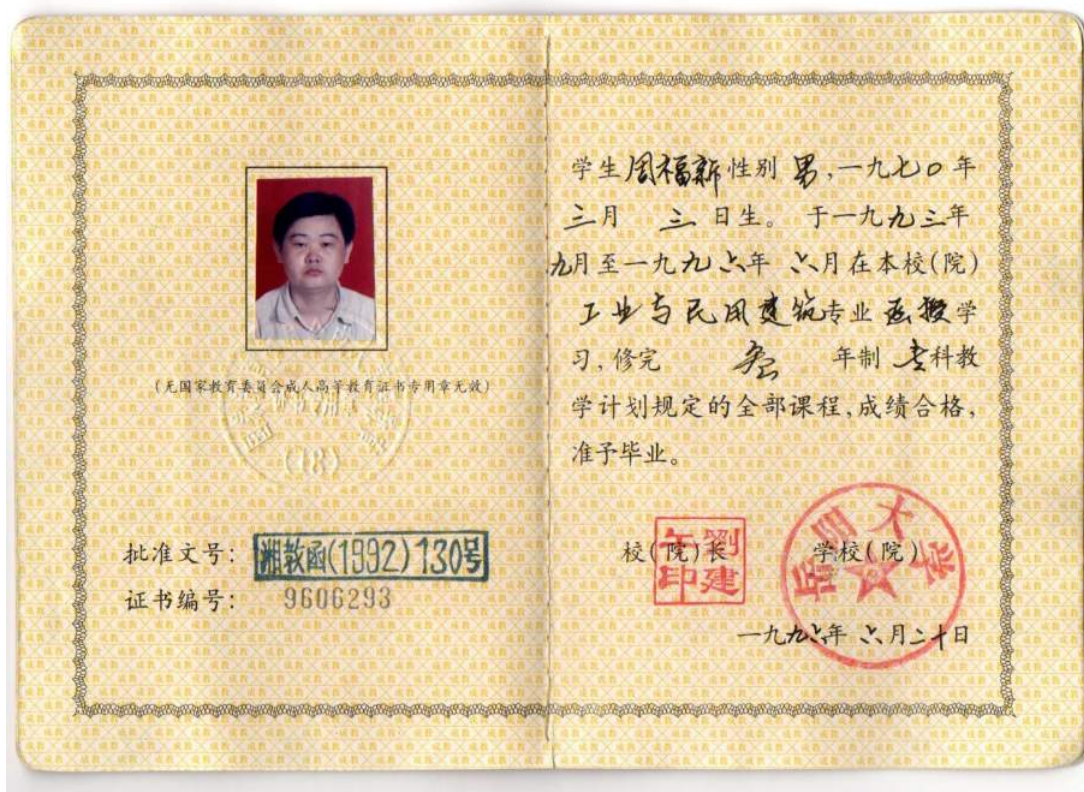 (无国家教育委员会成人高等教育证书专用章无效)
(18)
批准文号: 湘教函(1992)130号
证书编号: 9606293
学生周福新性别 男,一九七0年
三月 三 日生。 于一九九三年
九月至一九九六年 六月在本校(院)
工业与民用建筑专业 函授学
习,修完 叁 年制 专科教
学计划规定的全部课程,成绩合格,
准予毕业。
校(院)长 学校(院)
刘建
印
大学
一九九六年 六月二十日